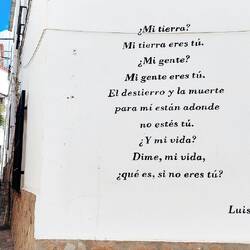 ¿Mi tierra?
Mi tierra eres tú.
¿Mi gente?
Mi gente eres tú.
El destierro y la muerte
para mi están adonde
no estés tú.
¿Y mi vida?
Dime, mi vida,
¿qué es, si no eres tú?
Luis